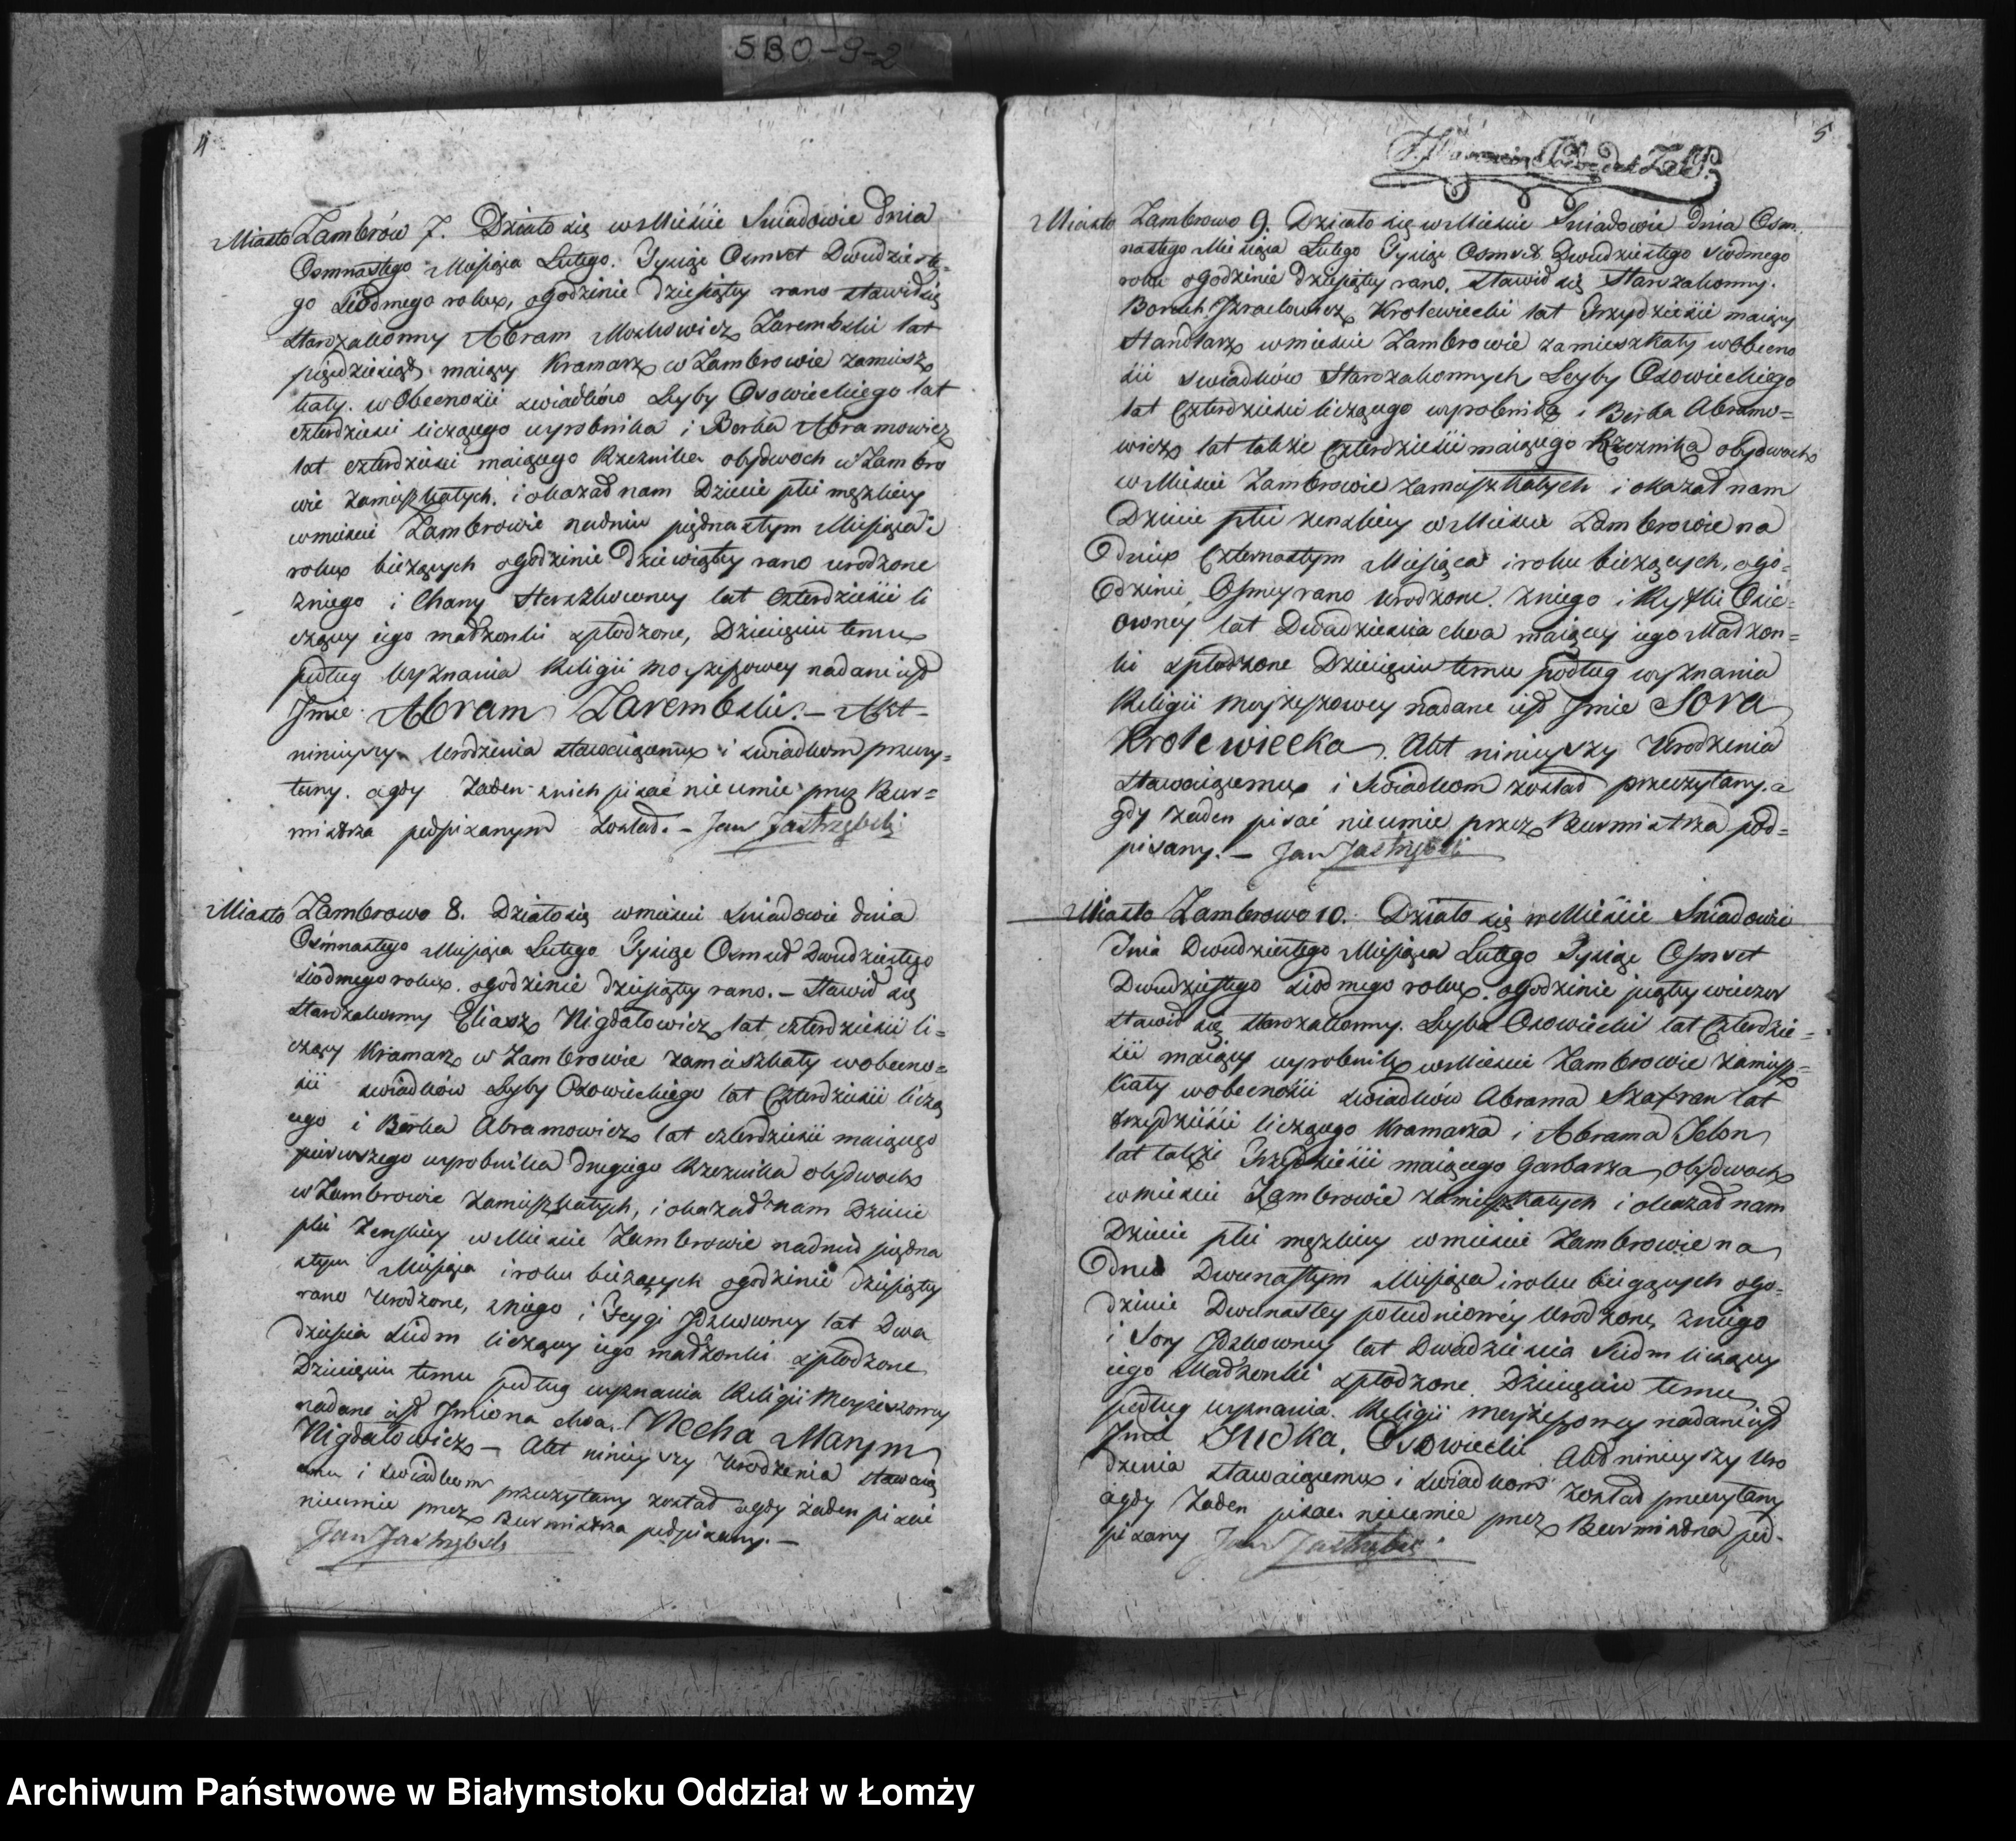 5BO-9-2
4
Miasto Zambrów 7. Działo się w Mieście Sniadowie dnia
Osmnastego Miesiąca Lutego. Tysiąc Osmset Dwudzieste-
go Siodmego roku, ogodzinie dziesiąty rano stawił się
starozakonny Abram Moskowicz Zarembski lat
pięćdziesiąt maiący Kramarz w Zambrowie zamiesz
kały. w obecności swiadków Leyby Osowieckiego lat
czterdzieści liczącego wyrobnika i Berka Abramowicz
lat czterdzieści maiącego Rzeznika obydwoch w Zambro
wie zamieszkałych. i okazał nam Dziecie płci męzkiey
w mieście Zambrowie na dniu piętnastym Miesiąca i
roku bieżących o godzinie dziewiąty rano urodzone
z niego i Chany Herszkowney lat czterdzieści li
czący iego małżonki spłodzone, Dziecięciu temu
podług wyznania Religii Moyzeszowey nadane iest
Imie Abram Zarembski. — Akt
ninieyszy Urodzenia stawaiącemu i swiadkom przeczy=
tany. a gdy żaden z nich pisać nie umie przez Bur=
mistrza podpisanym został. — Jan Jastrzębski
Miasto Zambrowo 8. Działo się w mieście Sniadowie dnia
Osmnastego Miesiąca Lutego Tysiąc Osmset Dwudziestego
siodmego roku. ogodzinie dziesiąty rano. — Stawił się
starozakonny Eliasz Nigdałowicz lat czterdzieści li=
czący Kramarz w Zambrowie zamieszkały w obecno=
ści swiadków Leyby Osowieckiego lat Czterdzieści liczą
cego i Berka Abramowicz lat czterdzieści maiącego
pierwszego wyrobnika drugiego Rzeznika obydwoch
w Zambrowie zamieszkałych, i okazał nam Dziecie
płci Zenskiey w Mieście Zambrowie na dniu piętna
stym Miesiąca i roku bieżących ogodzinie dziesiąty
rano Urodzone, z niego i Feygi lat Dwa
dzieścia siedm liczący iego małżonki spłodzone
Dziecięciu temu podług wyznania Religii Moyzeszowey
nadane iest Imiona dwa. Necha Marym
Nigdałowicz — Akt ninieyszy Urodzenia stawaią
cemu i swiadkom przeczytany został a gdy żaden pisać
nieumie przez Burmistrza podpisany. —
Jan Jastrzębski
5
Miasto Zambrowo 9. Działo się w Mieście Sniadowie dnia Osm
nastego Miesiąca Lutego Tysiąc Osmset Dwudziestego siodmego
roku ogodzinie dziesiąty rano. stawił się Starozakonny.
Boruch Izraelowicz Krolewiecki lat Trzydzieście maiący
Handlarz w mieście Zambrowie zamieszkały w Obecno
ści swiadków Starozakonnych Leyby Osowieckiego
lat Czterdzieści liczącego wyrobnika i Berka Abramo=
wicz lat także Czterdzieści maiącego Rzeznika obydwoch
w Mieście Zambrowie zamieszkałych i okazał nam
Dziecie płci zenskiey w Mieście Zambrowie na
Dniu Czternastym Miesiąca i roku bieżących, ogo=
dzinie Osmey rano Urodzone. z niego i Ryfki
owney lat Dwadzieścia dwa maiący iego Małżon=
ki spłodzone Dziecięciu temu podług wyznania
Religii Moyzeszowey nadane iest Imie Sora
Krolewiecka. Akt ninieyszy Urodzenia
stawaiącemu i swiadkom został przeczytany. a
gdy żaden pisać nieumie przez Burmistrza pod=
pisany. — Jan Jastrzębski
Miasto Zambrowo 10. Działo się w Mieście Sniadowie
Dnia Dwudziestego Miesiąca Lutego Tysiąc Osmset
Dwudziestego siodmego roku. ogodzinie piąty wieczor
stawił się starozakonny. Leyba Osowiecki lat Czterdzie=
ści maiący wyrobnik w Mieście Zambrowie zamiesz=
kały w obecności swiadków Abrama Szafran lat
trzydzieści liczącego Kramarza i Abrama Jelon
lat także Trzydzieści maiącego Garbarza obydwoch
w mieście Zambrowie zamieszkałych i okazał nam
Dziecie płci męzkiey w mieście Zambrowie na
Dniu Dwunastym Miesiąca i roku bieżących ogo=
dzinie Dwunastey południowéy Urodzone, z niego
i Sory lat Dwadzieścia siedm liczący
iego Małżonki spłodzone. Dziecięciu temu
podług wyznania. Religii Moyzeszowey nadane iest
Imie Judka. Osowiecki. Akt ninieyszy Uro
dzenia stawaiącemu i swiadkom został przeczytany
a gdy żaden pisać nieumie przez Burmistrza pod-
pisany Jan Jastrzębski
Archiwum Państwowe w Białymstoku Oddział w Łomży